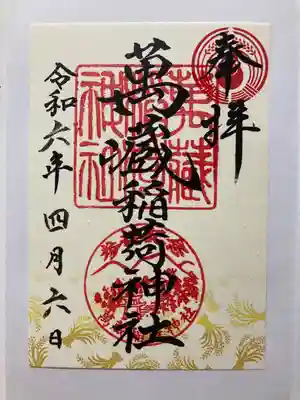 奉拝
萬蔵稲荷神社
令和六年 四月六日